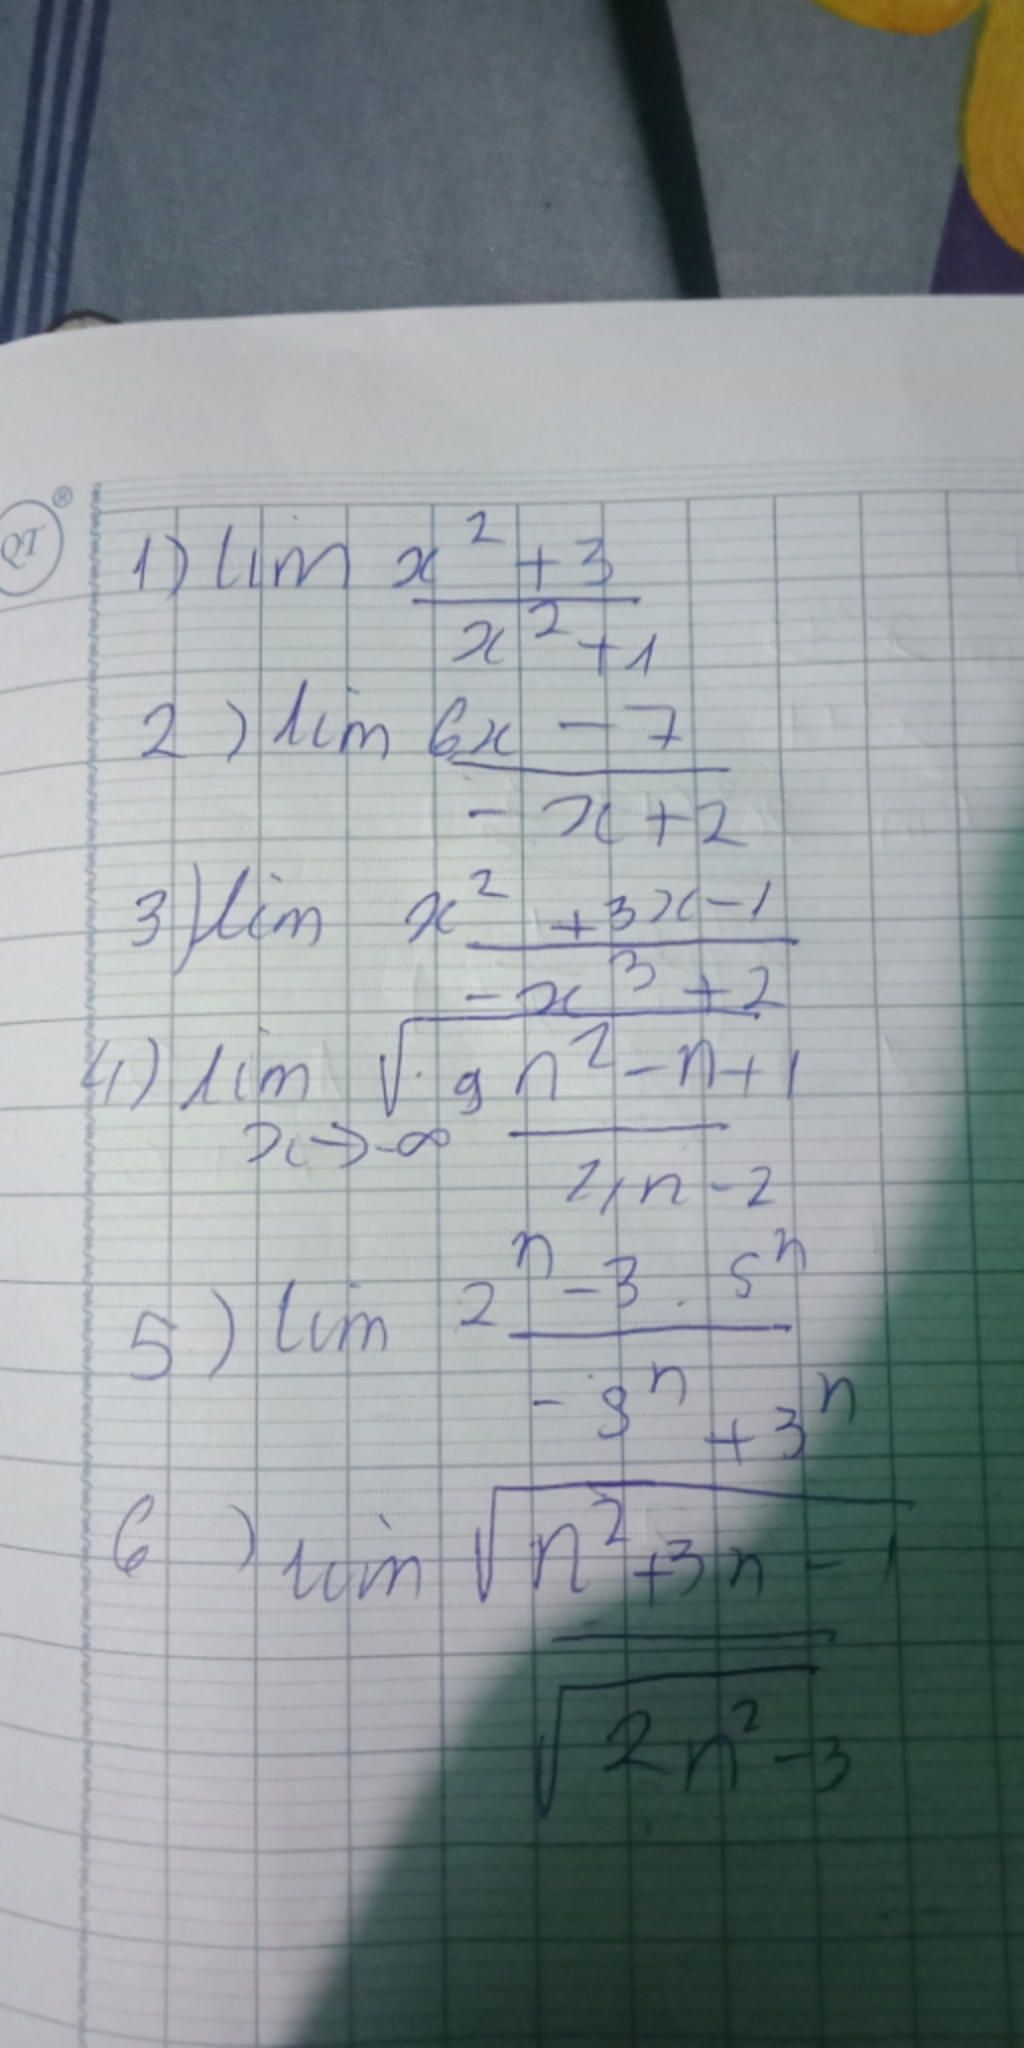 QT ®
1) lim x² + 3
x² + 1
2) lim 6x - 7
- x + 2
3) lim x² + 3x - 1
- x³ + 2
4) lim √9n² - n + 1
x → -∞
4n - 2
5) lim 2ⁿ - 3 . 5ⁿ
- 9ⁿ + 3ⁿ
6) lim √n² + 3n - 1
√2n² - 3